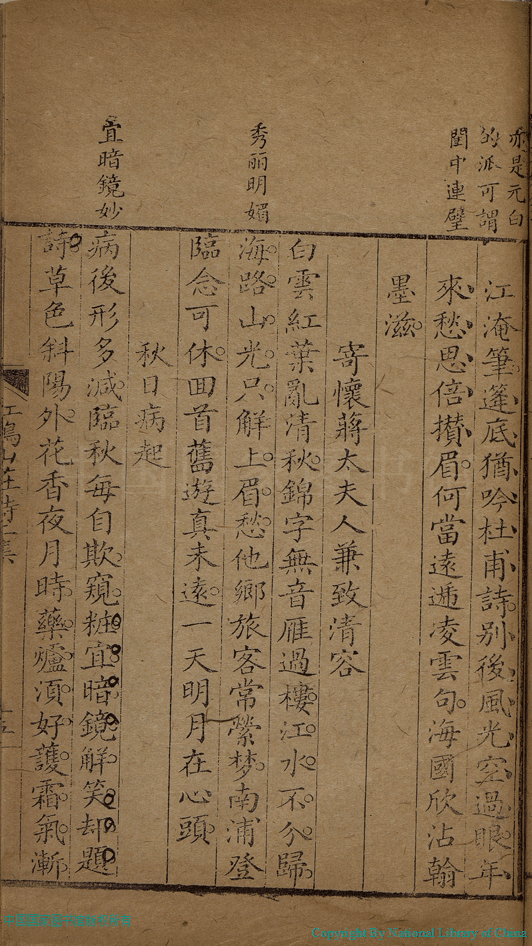 亦是元白
的派可謂
閨中連璧
江淹筆蓬底猶吟杜甫詩别後風光空過眼年
來愁思倍攢眉何當遠遞凌雲句海國欣沾翰
墨滋
寄懷蔣太夫人兼致清容
白雲紅葉亂清秋錦字無音雁過樓江水不分歸
秀丽明媚
海路山光只解上眉愁他鄉旅客常縈梦南浦登
臨念可休回首舊遊真未遠一天明月在心頭
秋日病起
宜暗鏡妙
病後形多減臨秋每自欺窺粧宜暗鏡解笑却題
詩草色斜陽外花香夜月時藥爐湏好護霜氣漸
Copyright By National Library of China